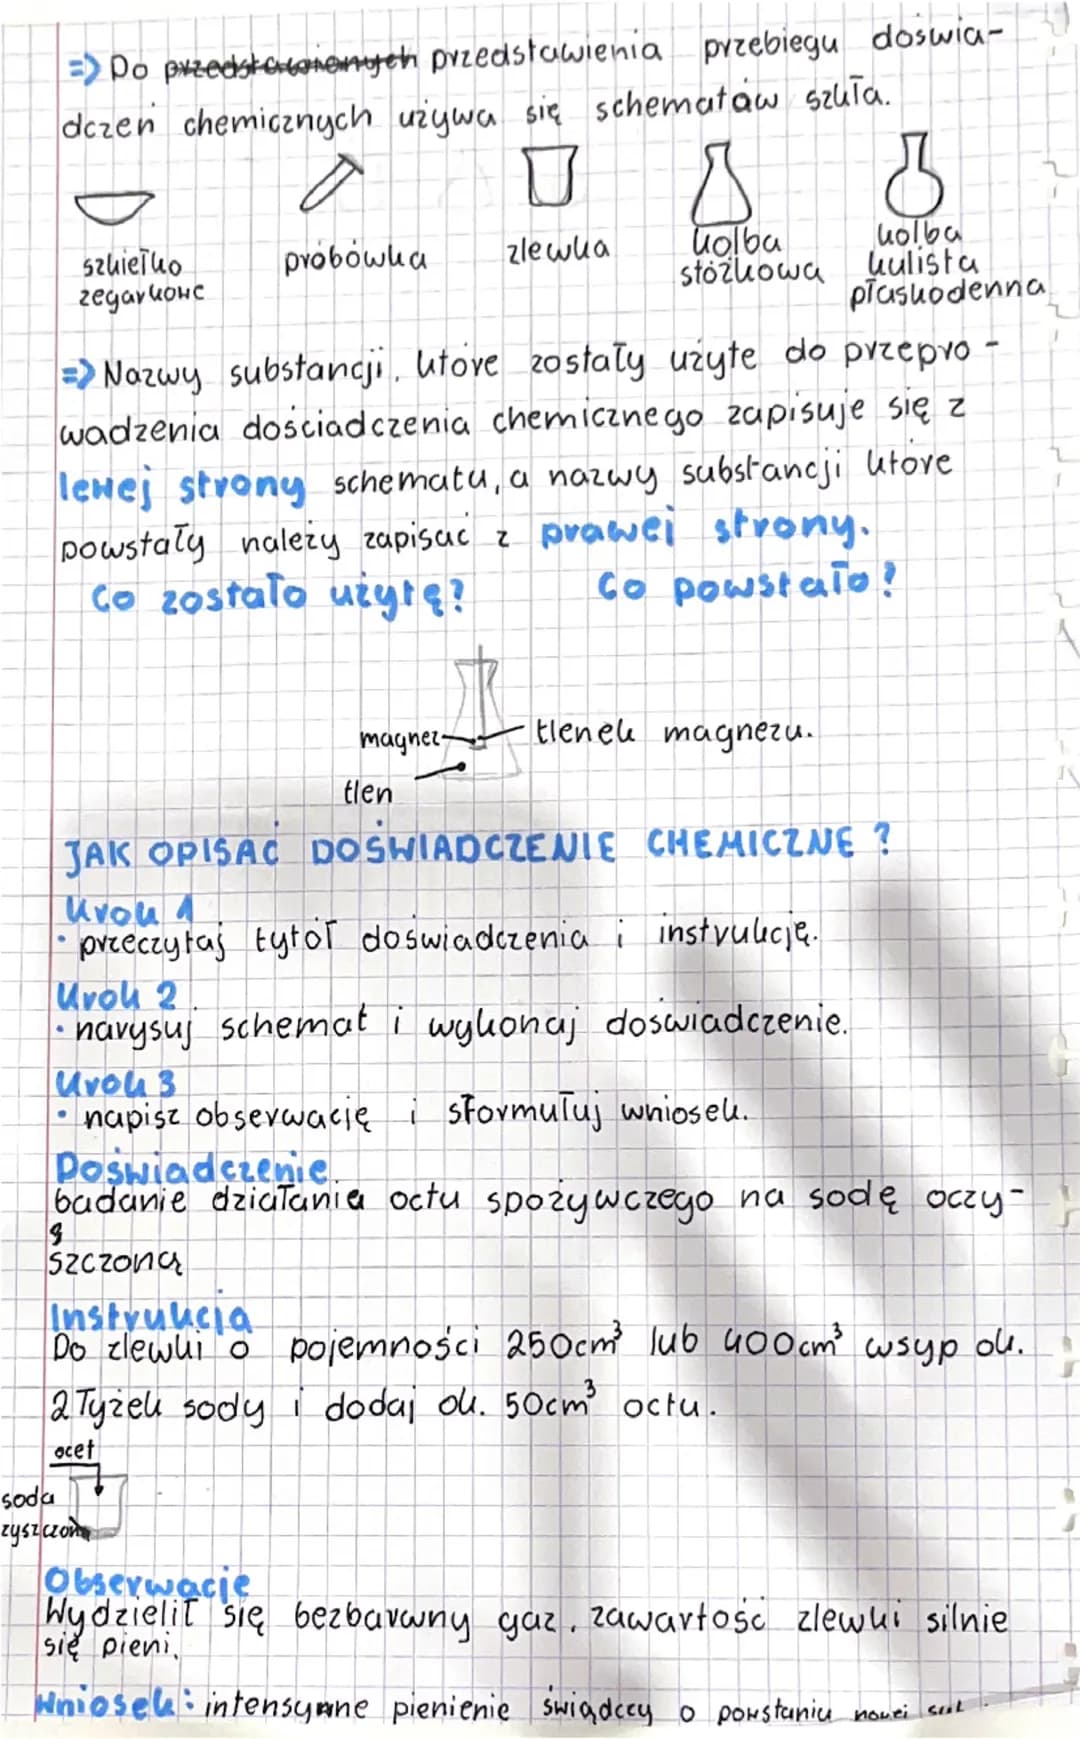 => Do przedstawionych przedstawienia przebiegu doświa-
dczeń chemicznych używa się schematów szkła.
szkiełko zegarkowe
próbówka
zlewka
kolba stożkowa
kolba kulista płaskodenna
=> Nazwy substancji, które zostały użyte do przepro-
wadzenia dościadczenia chemicznego zapisuje się z
lewej strony schematu, a nazwy substancji które
powstały należy zapisać z prawej strony.
Co zostało użytę? Co powstało?
magnez
tlenek magnezu.
tlen
JAK OPISAĆ DOŚWIADCZENIE CHEMICZNE?
Krok 1
• przeczytaj tytół doświadczenia i instrukcję.
Krok 2
• narysuj schemat i wykonaj doświadczenie.
Krok 3
• napisz obserwację i sformułuj wniosek.
Doświadczenie
badanie działania octu spożywczego na sodę oczy-
szczoną
Instrukcja
Do zlewki o pojemności 250cm³ lub 400cm³ wsyp ok.
2 łyżek sody i dodaj ok. 50cm³ octu.
ocet
soda
zyszczona
Obserwacje
Wydzielił się bezbarwny gaz, zawartość zlewki silnie
się pieni.
Wniosek: intensywne pienienie świądczy o powstaniu nowej